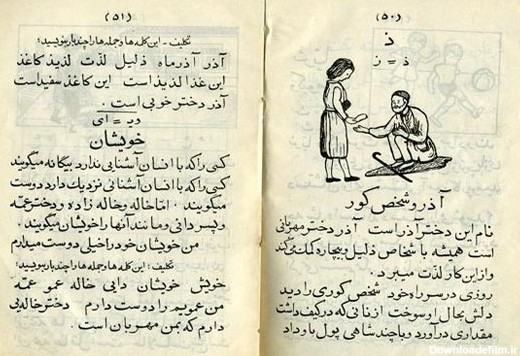 (۵۰)
ذ
ذ = ز
آذر و شخص کور
نام این دختر آذر است آذر دختر مهربانی
است همیشه با شخاص ذلیل و بیچاره کمک میکند
و از این کار لذت میبرد .
روزی در سر راه خود شخص کوری را دید
دلش بحال او سوخت از نانی که در کیف داشت
مقداری درآورد و با چند شاهی پول با و داد
(۵۱)
تکلیف - این کلمه ها و جمله ها را چند بار بنویسید :
آذر آذرماه ذلیل لذت لذیذ کاغذ
این غذا لذیذ است این کاغذ سفید است
آذر دختر خوبی است .
وی = ای
خویشان
کسی را که با انسان آشنایی ندارد بیگانه میگویند
کسی را که با انسان آشنائی نزدیک دارد دوست
میگویند . اما خاله و خاله زاده و دختر عمه
و پسر دائی و مانند آنها را خویشان میگویند .
من خویشان خود را خیلی دوست میدارم
تکلیف : این کلمه ها و جمله ها را چند بار بنویسید :
خویش خویشان دایی خاله عمو عمه
من عمویم را دوست دارم دختر خاله ایی
دارم که بمن مهربان است .
Downloadefilm.ir